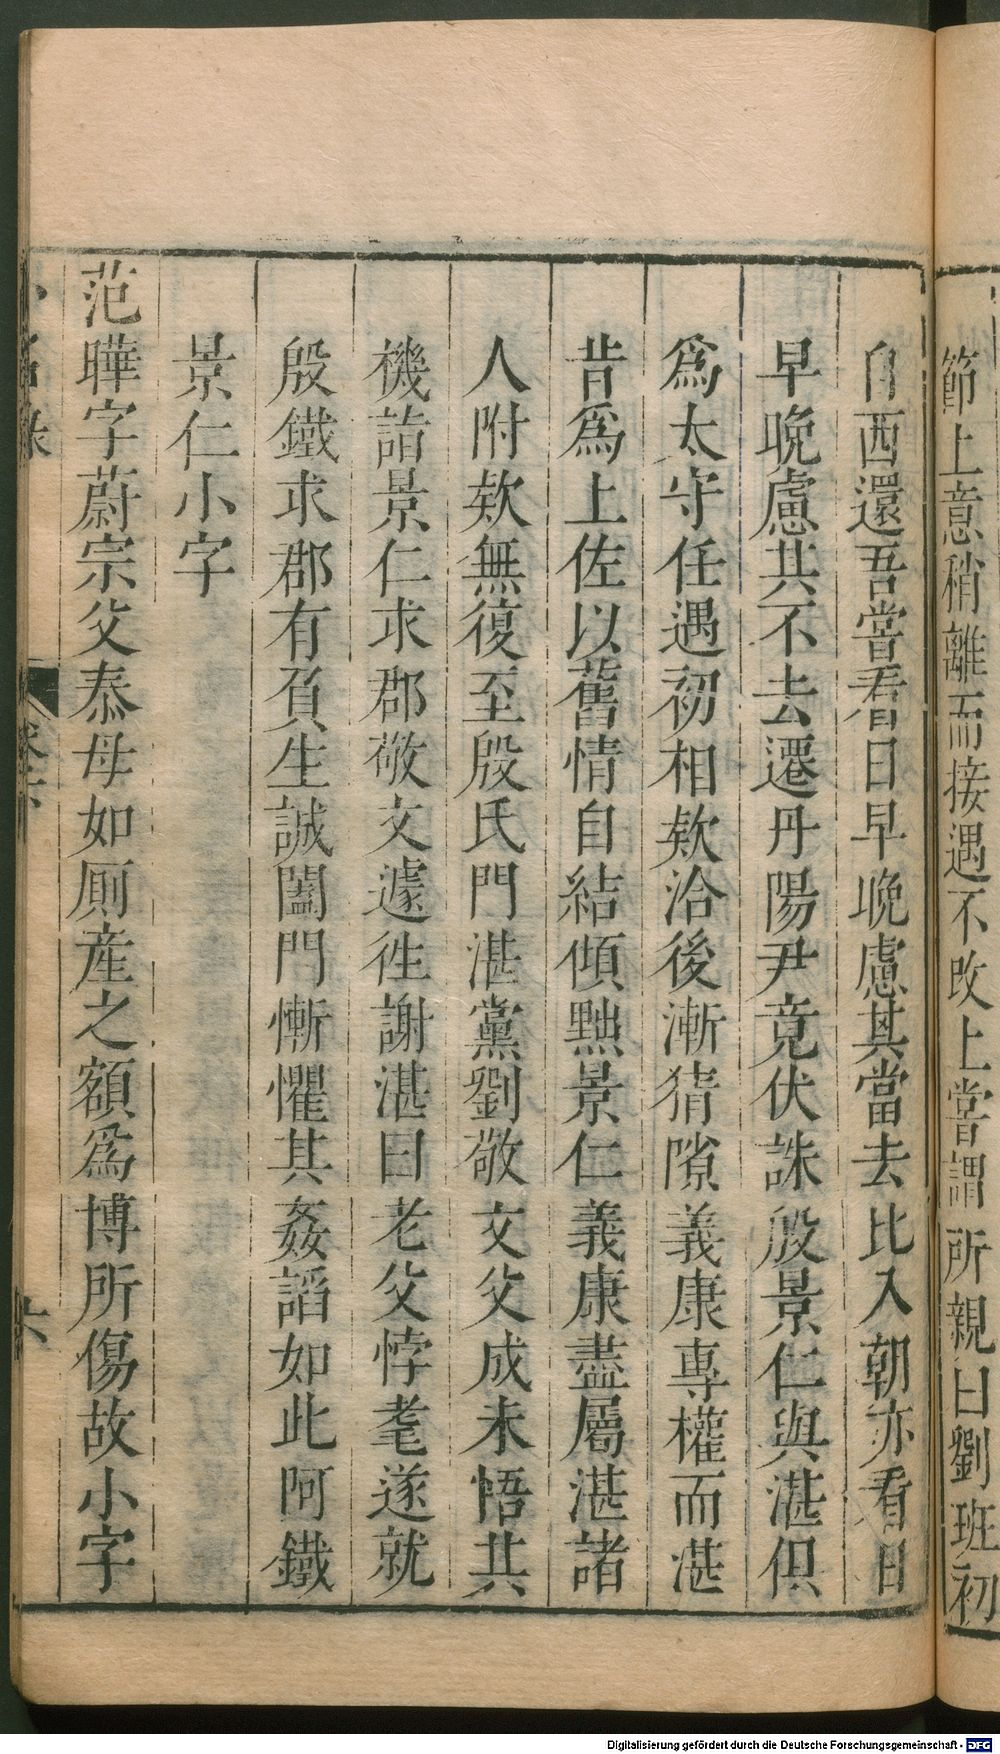 節上意稍離而接遇不改上嘗謂所親曰劉班初
自西還吾嘗看日早晚慮其當去比入朝亦看日
早晚慮其不去遷丹陽尹竟伏誅殷景仁與湛俱
爲太守任遇初相欵洽後漸猜隙義康專權而湛
昔爲上佐以舊情自結傾黜景仁義康盡屬湛諸
人附欵無復至殷氏門湛黨劉敬文父成未悟其
機詣景仁求郡敬文遽徃謝湛曰老父悖耄遂就
殷鐵求郡有負生誠闔門慚懼其姦謟如此阿鐵
景仁小字
范曄字蔚宗父泰母如厠産之額爲博所傷故小字
小名錄
卷六
六
Digitalisierung gefördert durch die Deutsche Forschungsgemeinschaft - DFG